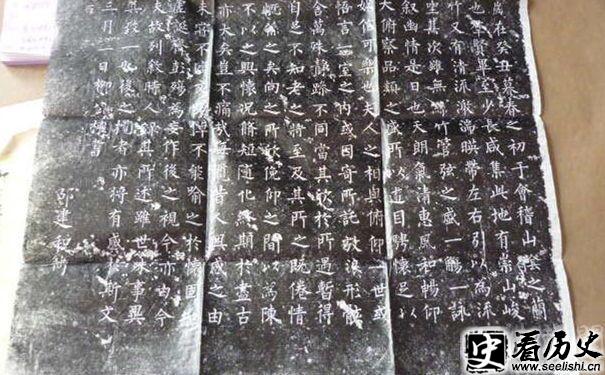 歲在癸丑暮春之初于會稽山陰之蘭
也群賢畢至少長咸集此地有崇山峻
竹又有清流激湍映帶左右引以為流
坐其次雖無絲竹管弦之盛一觴一詠
叙幽情是日也天朗氣清惠風和暢仰
大俯察品類之盛所以遊目騁懷足以
娛信可樂也夫人之相與俯仰一世或
悟言一室之內或因寄所託放浪形骸
舍萬殊靜躁不同當其欣於所遇暫得
自足不知老之將至及其所之既倦情
慨係之矣向之所欣俛仰之間以為陳
不以之興懷況脩短隨化終期於盡古
亦大矣豈不痛哉每覽昔人興感之由
未嘗不臨文嗟悼不能喻之於懷固知
虛誕齊彭殤為妄作後之視今亦由今
夫故列叙時人錄其所述雖世殊事異
其致一也後之覽者亦將有感於斯文
三月一日柳公權書
邵建和
看历史
www.seelishi.cn